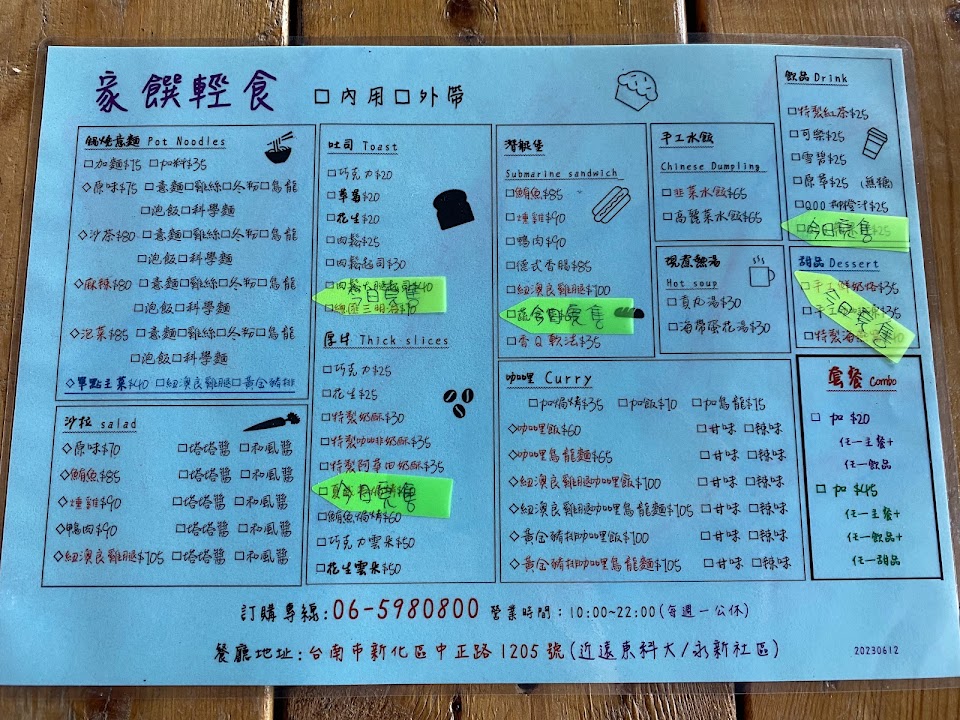 家饌輕食
□內用□外帶
鍋燒意麵 Pot Noodles
□加麵$15 □加料$35
◇原味$75 □意麵□雞絲□冬粉□烏龍
□泡飯□科學麵
◇沙茶$80 □意麵□雞絲□冬粉□烏龍
□泡飯□科學麵
◇麻辣$80 □意麵□雞絲□冬粉□烏龍
□泡飯□科學麵
◇泡菜$85 □意麵□雞絲□冬粉□烏龍
□泡飯□科學麵
◇單點主菜$40 □紐澳良雞腿□黃金豬排
沙拉 salad
◇原味$70 □塔塔醬 □和風醬
◇鮪魚$85 □塔塔醬 □和風醬
◇燻雞$90 □塔塔醬 □和風醬
◇鴨肉$90 □塔塔醬 □和風醬
◇紐澳良雞腿$105 □塔塔醬 □和風醬
吐司 Toast
□巧克力$20
□草莓$20
□花生$20
□肉鬆$25
□肉鬆起司$30
今日完售
厚片 Thick slices
□巧克力$25
□花生$25
□特製奶酥$30
□特製咖啡奶酥$35
□特製阿華田奶酥$35
今日完售
□鮪魚焗烤$60
□巧克力雲朵$50
□花生雲朵$50
潛艇堡
Submarine sandwich
□鮪魚$85
□燻雞$90
□鴨肉$90
□德式香腸$85
□紐澳良雞腿$100
今日完售
□香Q軟法$35
手工水餃
Chinese Dumpling
□韭菜水餃$65
□高麗菜水餃$65
現煮熱湯
Hot soup
□貢丸湯$30
□海帶蛋花湯$30
咖哩 Curry
□加焗烤$35 □加飯$10 □加烏龍$15
◇咖哩飯$60 □甘味 □辣味
◇咖哩烏龍麵$65 □甘味 □辣味
◇紐澳良雞腿咖哩飯$100 □甘味 □辣味
◇紐澳良雞腿咖哩烏龍麵$105 □甘味 □辣味
◇黃金豬排咖哩飯$100 □甘味 □辣味
◇黃金豬排咖哩烏龍麵$105 □甘味 □辣味
飲品 Drink
□特製紅茶$25
□可樂$25
□雪碧$25
□原萃$25 (無糖)
□QOO柳橙汁$25
今日完售
甜品 Dessert
今日完售
套餐 Combo
□ 加 $20
任一主餐+
任一飲品
□ 加 $45
任一主餐+
任一飲品+
任一甜品
訂購專線:06-5980800 營業時間:10:00~22:00(每週一公休)
餐廳地址:台南市新化區中正路1205號(近遠東科大/永新社區)
20230612